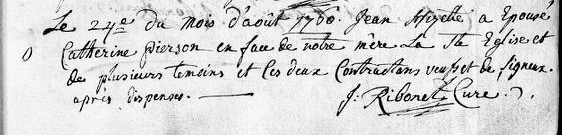 Le 24e du mois d'août 1760. Jean a Epousé
O Catherine pierson en face de notre mère La Ste Eglise et
de plusieurs temoins et les deux Contractans veufs et
après dispenses.
J: Ribonet Curé